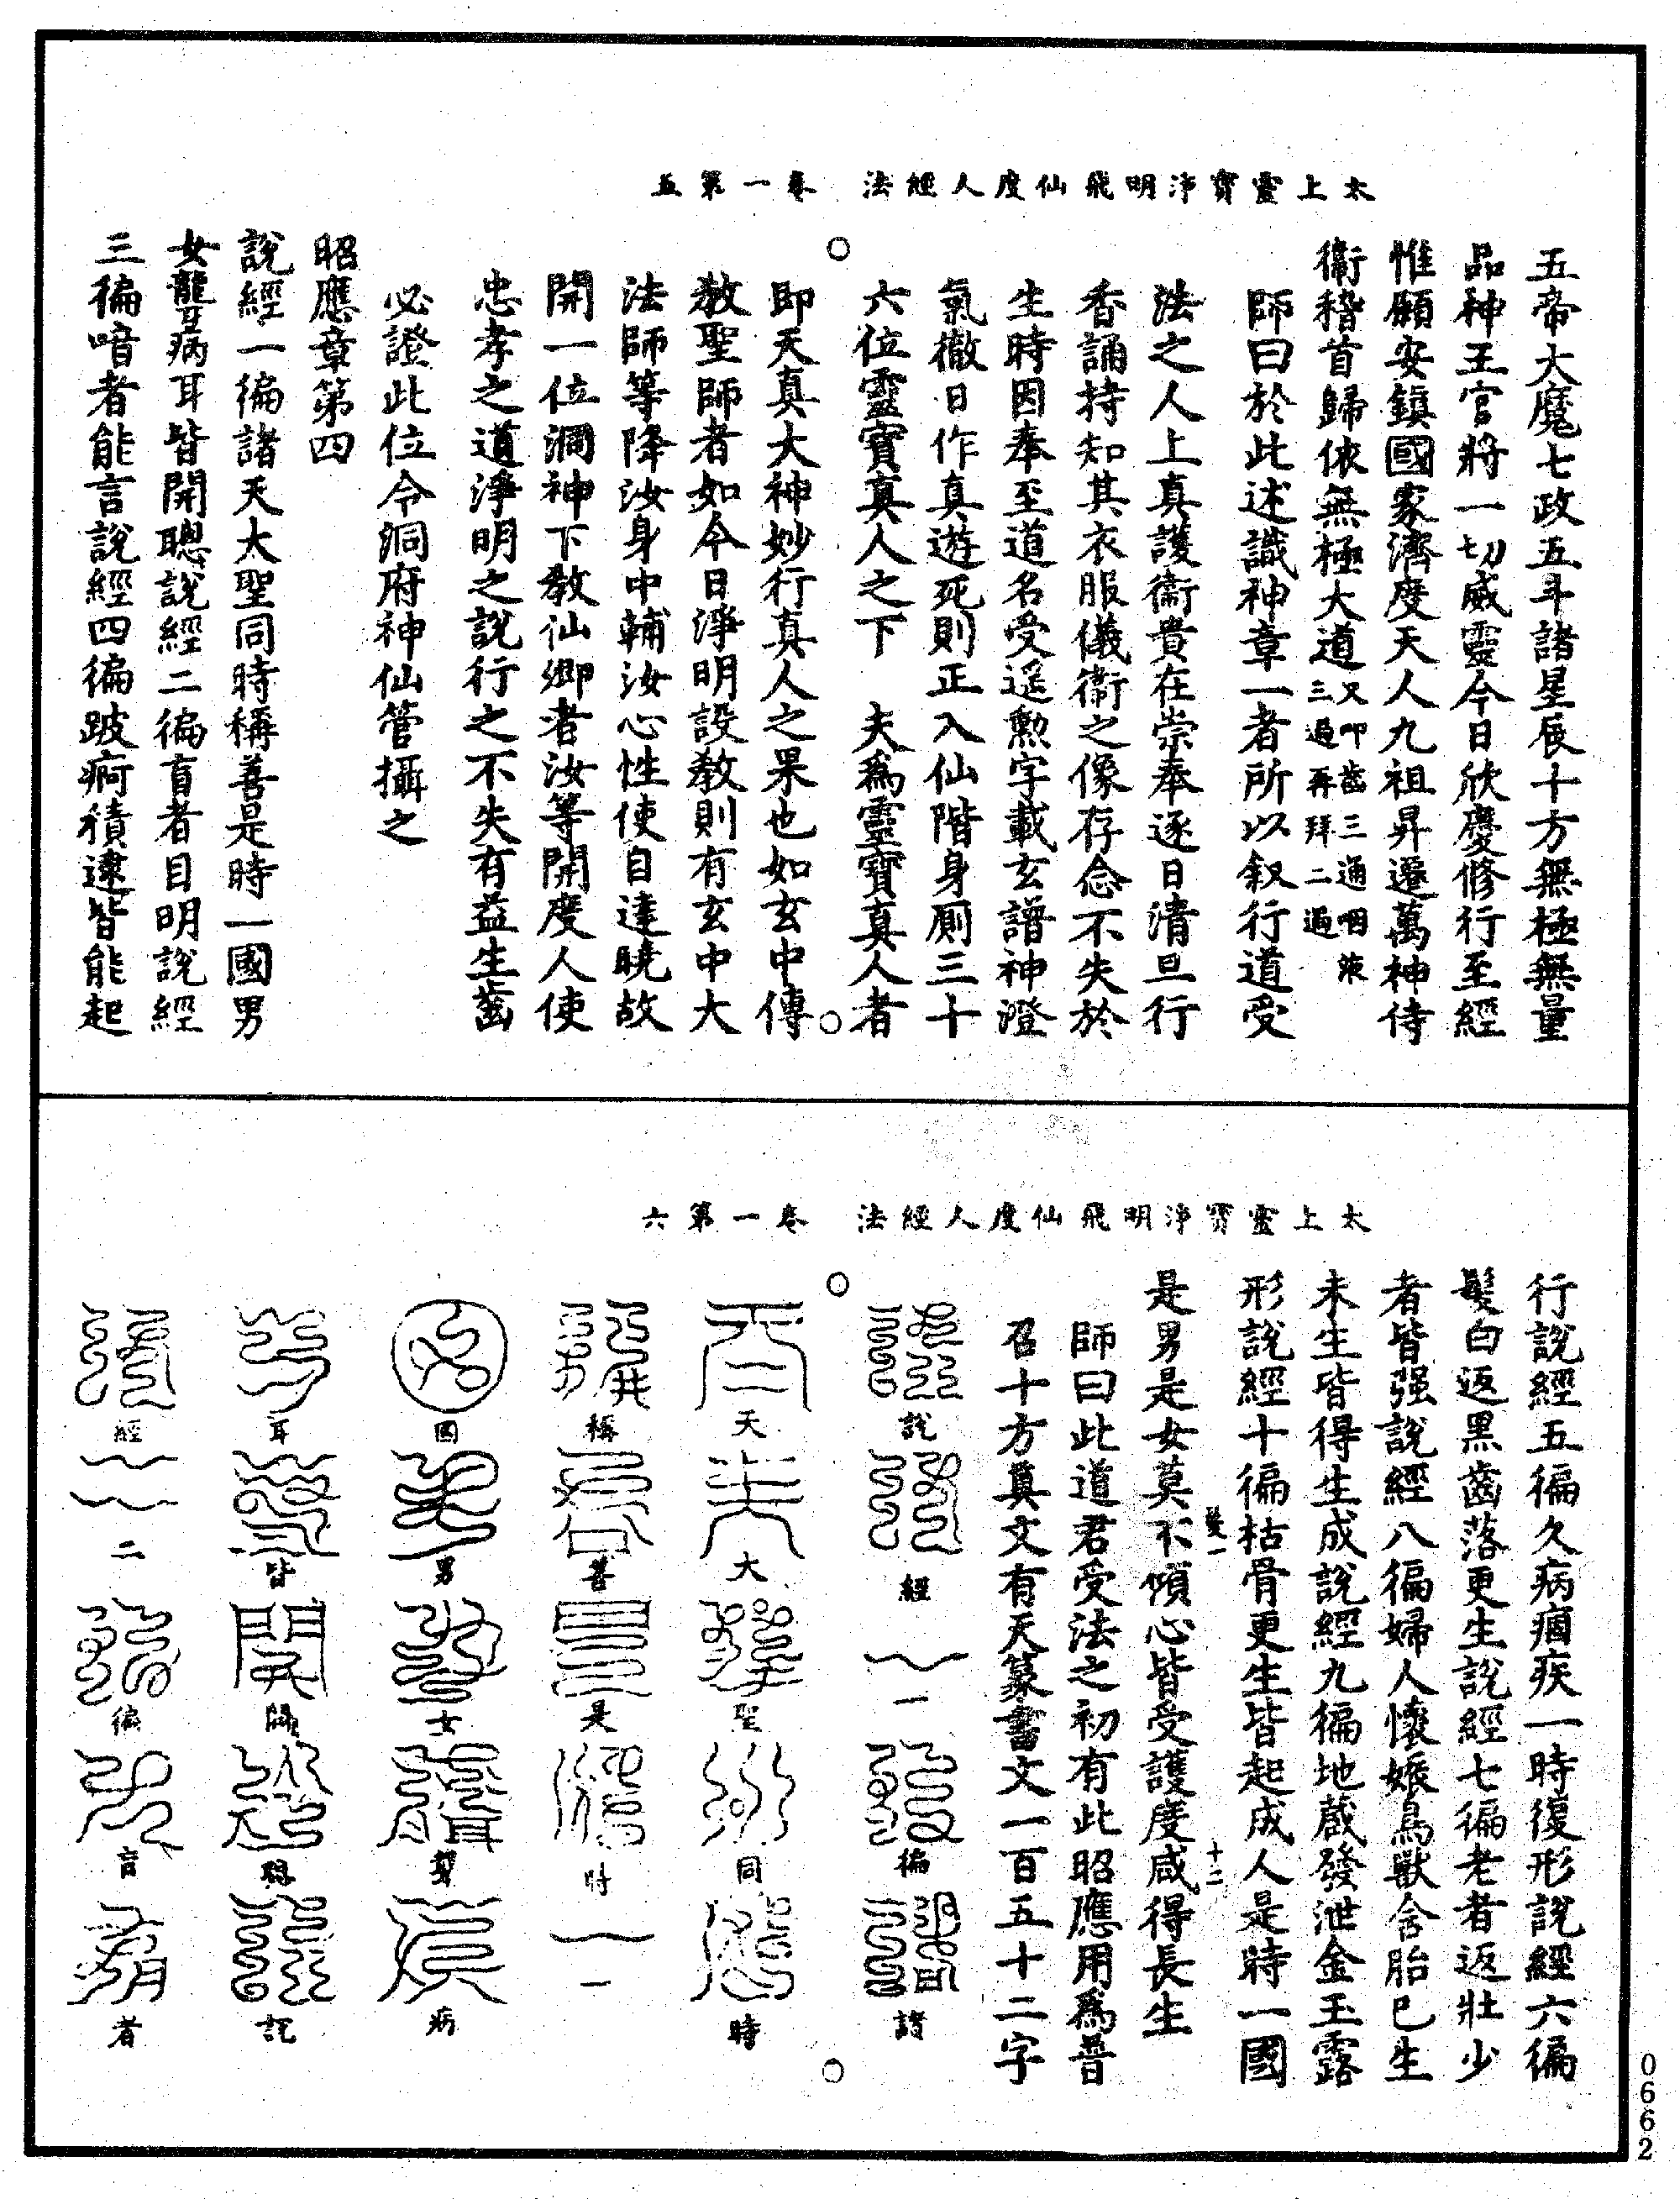 太上靈寶淨明飛仙度人經法　卷一第五
五帝大魔七政五斗諸星辰十方無極無量
品神王官將一切威靈今日欣慶修行至經
惟願安鎮國家濟度天人九祖昇遷萬神侍
衞稽首歸依無極大道又叩齒三通咽液三過再拜二過
師曰於此述識神章一者所以叙行道受
法之人上真護衞貴在崇奉逐日清旦行
香誦持知其衣服儀衞之像存念不失於
生時因奉至道名受遥勲字載玄譜神澄
氣徹日作真遊死則正入仙階身厠三十
六位靈寶真人之下　夫爲靈寶真人者
即天真大神妙行真人之果也如玄中傳
教聖師者如今日淨明設教則有玄中大
法師等降汝身中輔汝心性使自達曉故
開一位洞神下教仙卿者汝等開度人使
忠孝之道淨明之說行之不失有益生齒
必證此位令洞府神仙管攝之
昭應章第四
說經一徧諸天大聖同時稱善是時一國男
女聾病耳皆開聰說經二徧盲者目明說經
三徧喑者能言說經四徧跛痾積逮皆能起
太上靈寶淨明飛仙度人經法　卷一第六
行說經五徧久病痼疾一時復形說經六徧
髮白返黑齒落更生說經七徧老者返壯少
者皆强說經八徧婦人懷娠鳥獸含胎已生
未生皆得生成說經九徧地藏發泄金玉露
形說經十徧枯骨更生皆起成人是時一國
髮一　十二
是男是女莫不傾心皆受護度咸得長生
師曰此道君受法之初有此昭應用爲普
召十方奠文有天篆書文一百五十二字
說　經　一　徧　諸
天　大　聖　同　時
稱　善　是　時　一
國　男　女　聾　病
耳　皆　開　聰　說
經　二　徧　盲　者
0662